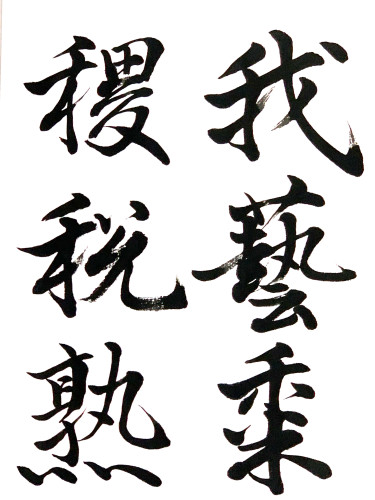 我藝黍
稷税熟